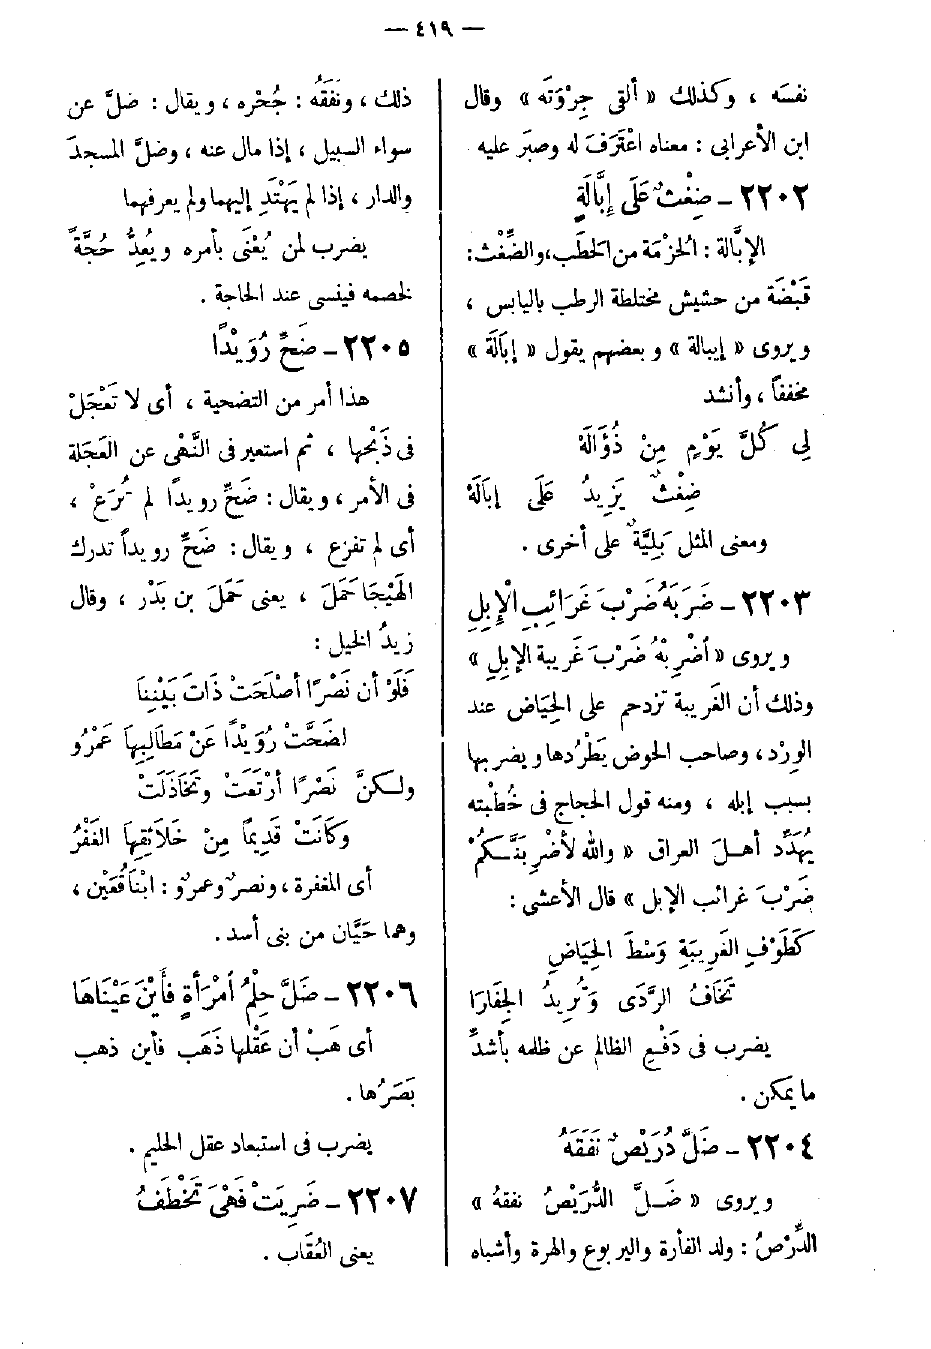 — ٤١٩ —
نفسَه ، وكذلك « ألقى جِرْوَتَه » وقال
ابن الأعرابى : معناه اعْتَرَفَ له وصبَر عليه
٢٢٠٢ – ضِغْثٌ عَلَى إِبَّالَةٍ
الإبَّالة : الحُزْمَة من الحطَب، والضِّغْث :
قَبْضَة من حشيش مختلطة الرطب باليابس ،
ويروى « إيبالة » وبعضهم يقول « إبَالَة »
مخففاً ، وأنشد
لِى كُلَّ يَوْمٍ مِنْ ذُؤَالَهْ
ضِغْثٌ يَزِيدُ عَلَى إبَالَهْ
ومعنى المثل بَلِيَّةٌ على أخرى .
٢٢٠٣ – ضَرَبَهُ ضَرْبَ غَرَائِبِ الْإِبِلِ
ويروى « أضْرِبْهُ ضَرْبَ غَريبة الإبلِ »
وذلك أن الغَريبة تزدحم على الحِيَاض عند
الوِرْد ، وصاحب الحوض يَطْرُدها ويضربها
بسبب إبله ، ومنه قول الحجاج فى خُطْبته
يُهَدِّد أهـلَ العراق « والله لأضْرِبَنَّـكُمْ
ضَرْبَ غرائب الإبل » قال الأعشى :
كَطَوْفِ الغَرِيبَةِ وَسْطَ الحِيَاضِ
تَخَافُ الرَّدَى وَتُرِيدُ الجِفَارَا
يضرب فى دَفْعِ الظالم عن ظلمه بأشدِّ
ما يمكن .
٢٢٠٤ – ضَلَّ دُرَيْصٌ نَفَقَهُ
ويروى « ضَـلَّ الدُّرَيْصُ نفقهُ »
الدِّرْصُ : ولد الفأرة واليربوع والهرة وأشباه
ذلك ، ونَفَقُه : جُحْره ، ويقال : ضلَّ عن
سواء السبيل ، إذا مال عنه ، وضلَّ المسجدَ
والدار ، إذا لم يَهْتَدِ إليهما ولم يعرفهما
يضرب لمن يُعْنَى بأمره ويُعِدُّ حُجَّةً
لخصمه فينسى عند الحاجة .
٢٢٠٥ – ضَحِّ رُوَيْدًا
هذا أمر من التضحية ، أى لا تَعْجَلْ
فى ذَبْحها ، ثم استعير فى النَّهْى عن العَجَلة
فى الأمر ، ويقال : ضَحِّ رويدًا لم تُرَعْ ،
أى لم تفزع ، ويقال : ضَحِّ رويداً تدرك
الهَيْجَا حَمَلَ ، يعنى حَمَلَ بن بَدْر ، وقال
زيدُ الخيل :
فَلَوْ أن نَصْرًا أصْلَحَتْ ذَاتَ بَيْنِنَا
لضَحَّتْ رُوَيْدًا عَنْ مَطَالِبِهَا عَمْرُو
ولـكنَّ نَصْرًا أرْتَعَتْ وتَخَاذَلَتْ
وكَانَتْ قَدِيمًا مِنْ خَلَائِقِهَا الغَفْرُ
أى المغفرة ، ونصرٌ وعمرٌو : ابْنَا قُعَيْنٍ ،
وهما حَيَّان من بنى أسد .
٢٢٠٦ – ضَلَّ حِلْمُ أمْرَأةٍ فأيْنَ عَيْنَاهَا
أى هَبْ أن عَقْلها ذَهَب فأين ذهب
بَصَرُها .
يضرب فى استبعاد عقل الحليم .
٢٢٠٧ – ضَرِيَتْ فَهْىَ تَخْطَفُ
يعنى العُقَاب .